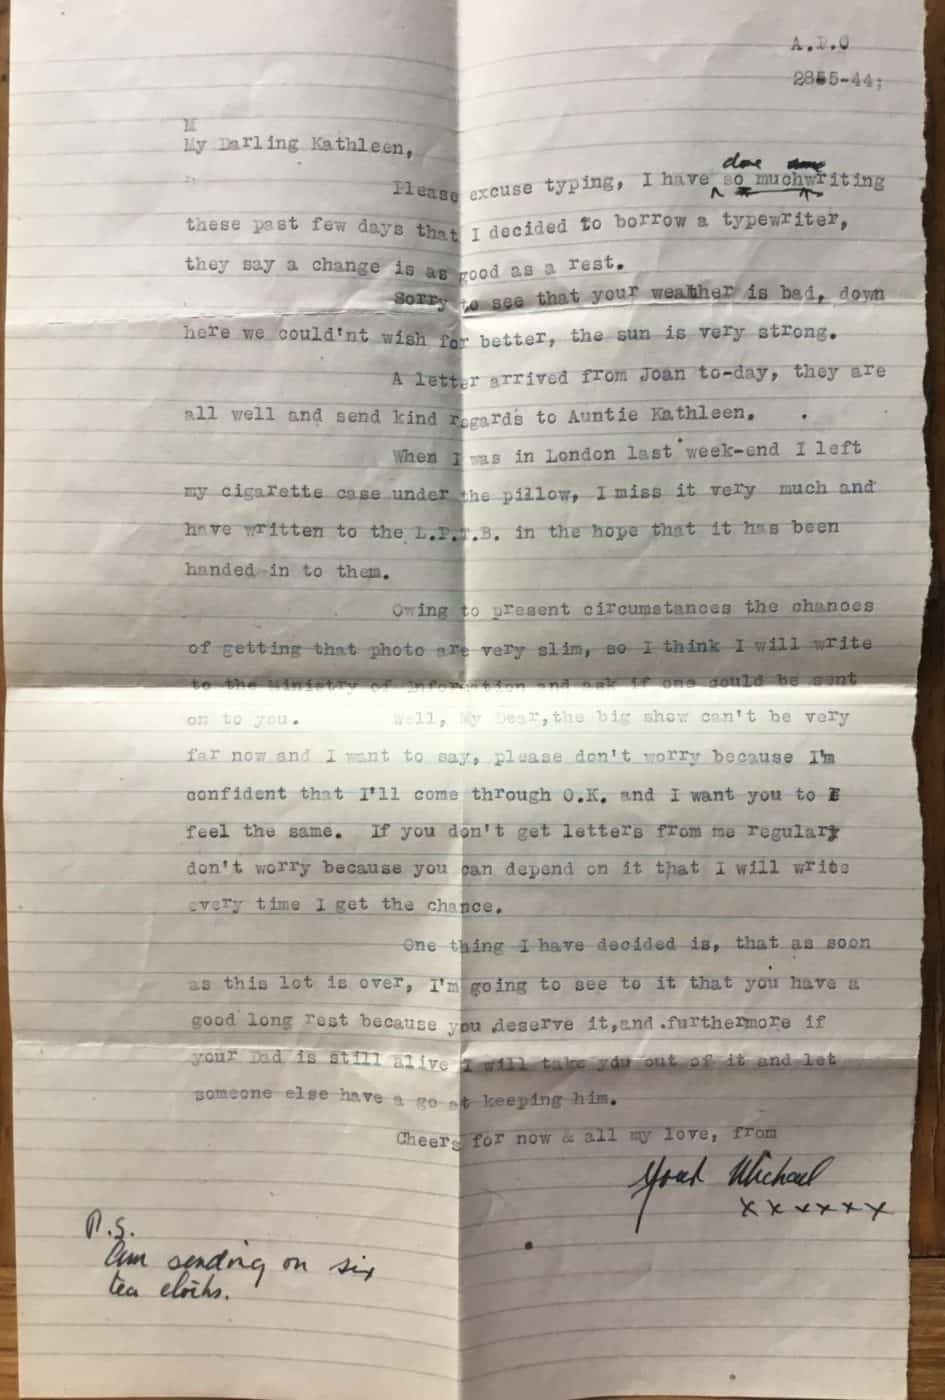 A.P.O
2855-44;
M
My Darling Kathleen,
done
Please excuse typing, I have so muchwriting
these past few days that I decided to borrow a typewriter,
they say a change is as good as a rest.
Sorry to see that your weather is bad, down
here we could'nt wish for better, the sun is very strong.
A letter arrived from Joan to-day, they are
all well and send kind regards to Auntie Kathleen.
When I was in London last week-end I left
my cigarette case under the pillow, I miss it very much and
have written to the L.P.T.B. in the hope that it has been
handed in to them.
Owing to present circumstances the chances
of getting that photo are very slim, so I think I will write
to the Ministry of Information and ask if one could be sent
on to you. Well, My Dear,the big show can't be very
far now and I want to say, please don't worry because I'm
confident that I'll come through O.K. and I want you to
feel the same. If you don't get letters from me regulary
don't worry because you can depend on it that I will write
every time I get the chance.
One thing I have decided is, that as soon
as this lot is over, I'm going to see to it that you have a
good long rest because you deserve it,and .furthermore if
your Dad is still alive I will take you out of it and let
someone else have a go at keeping him.
Cheers for now & all my love, from
Michael
x x x x x x
P.S.
Am sending on six
tea cloths.